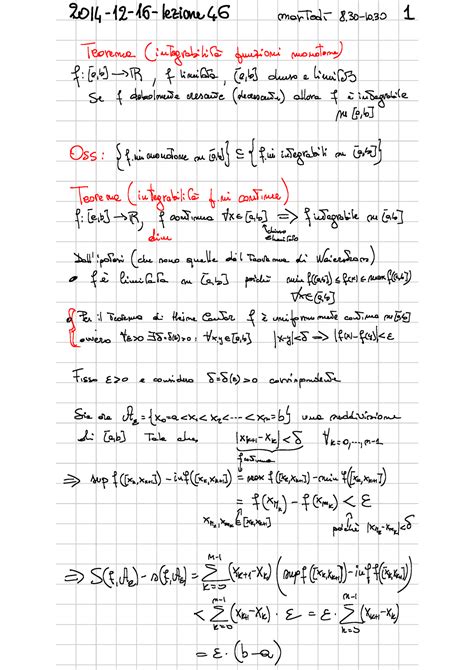 2014-12-16-lezione 46 martedì 8.30-10.30 1
Teorema (integrabilità funzioni monotone)
f: [a,b] → ℝ, f limitata, [a,b] chiuso e limitato
Se f debolmente crescente (decrescente) allora f è integrabile
su [a,b]
Oss: {f.ni monotone su [a,b]} ⊆ {f.ni integrabili su [a,b]}
Teorema (integrabilità f.ni continue)
f: [a,b] → ℝ, f continua ∀x∈[a,b] ⟹ f integrabile su [a,b]
dim
chiuso
e limitato
Dall'ipotesi (che sono quelle del Teorema di Weierstrass)
• f è limitata su [a,b] poiché min f([a,b]) ≤ f(x) ≤ max f([a,b])
∀x∈[a,b]
• Per il Teorema di Heine Cantor f è uniformemente continua su [a,b]
ovvero ∀ε>0 ∃δ=δ(ε)>0: ∀x,y∈[a,b] |x-y|<δ ⟹ |f(x)-f(y)|<ε
Fisso ε>0 e considero δ=δ(ε)>0 corrispondente
Sia ora 𝒜ε = {x₀=a<x₁<x₂<...<xₙ=b} una suddivisione
di [a,b] tale che |xₖ₊₁-xₖ|<δ ∀k=0,...,n-1
f continua
⟹ sup f([xₖ,xₖ₊₁]) - inf f([xₖ,xₖ₊₁]) = max f([xₖ,xₖ₊₁]) - min f([xₖ,xₖ₊₁])
= f(x_{Mₖ}) - f(x_{mₖ}) < ε
x_{Mₖ}, x_{mₖ} ∈ [xₖ,xₖ₊₁] poiché |x_{Mₖ}-x_{mₖ}|<δ
⟹ S(f,𝒜ε) - s(f,𝒜ε) = Σ_{k=0}^{n-1} (xₖ₊₁-xₖ) (sup f([xₖ,xₖ₊₁]) - inf f([xₖ,xₖ₊₁]))
< Σ_{k=0}^{n-1} (xₖ₊₁-xₖ) · ε = ε · Σ_{k=0}^{n-1} (xₖ₊₁-xₖ)
= ε · (b-a)